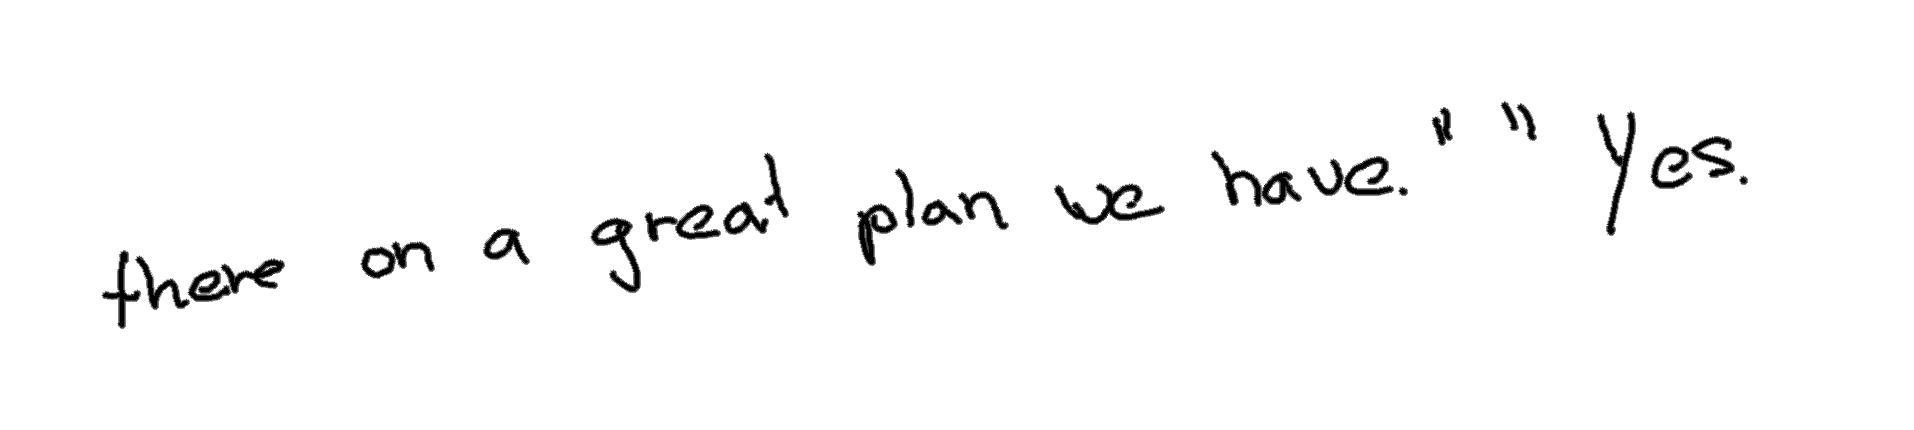 there on a great plan we have." " Yes.